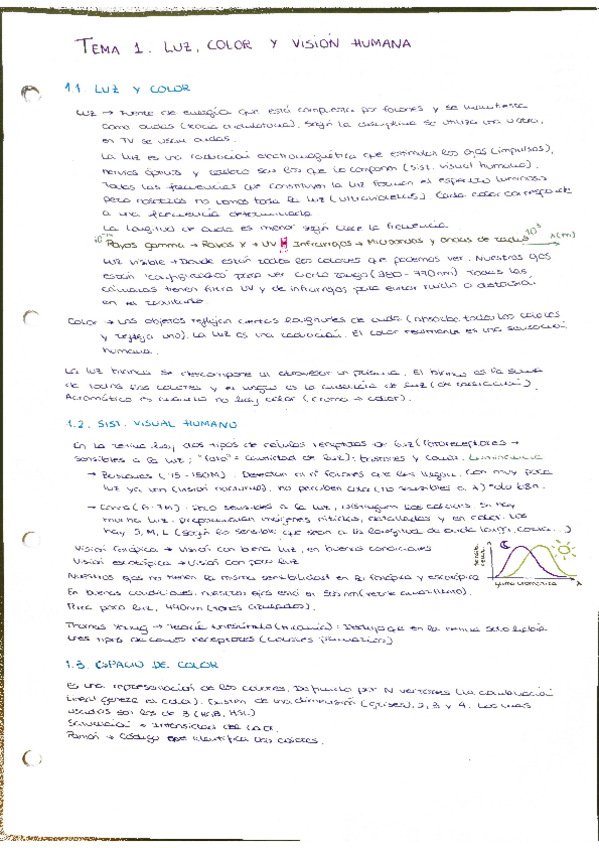 TEMA 1. LUZ, COLOR Y VISIÓN HUMANA
1.1. LUZ Y COLOR
Luz → Fuente de energía que está compuesta por fotones y se manifiesta
como ondas (teoría ondulatoria). Según la disciplina se utiliza una u otra,
en TV se usan ondas.
La luz es una radiación electromagnética que estimula los ojos (impulsos),
nervios ópticos y cerebro son los que lo componen (sist. visual humano).
Todas las frecuencias que constituyen la luz forman el espectro luminoso
pero nosotros no vemos toda la luz (ultravioleta). Cada color corresponde
a una frecuencia determinada.
La longitud de onda es menor según crece la frecuencia.
Rayos gamma → Rayos X → UV Infrarrojos → Microondas y ondas de radio λ(m)
Luz visible → Donde están todos los colores que podemos ver. Nuestros ojos
están "configurados" para ver cierto rango (380 - 770nm) Todas las
cámaras tienen filtro UV y de infrarrojos para evitar ruido o distorsión
en el resultado.
Color → Los objetos reflejan ciertas longitudes de onda (absorbe todos los colores
y refleja uno). La luz es una radiación. El color realmente es una sensación
humana.
La luz blanca se descompone al atravesar un prisma. El blanco es la suma
de todos los colores y el negro es la ausencia de luz (de radiación).
Acromático es cuando no hay color (cromo → color).
1.2. SIST. VISUAL HUMANO
En la retina hay dos tipos de células receptoras de luz (fotoreceptores →
sensibles a la luz; "foto" = cantidad de luz): bastones y conos. Luminancia
→ Bastones (115-150M). Detectan los fotones que les llegan. Con muy poca
luz ya ven (visión nocturna), no perciben color (no sensibles a λ) solo b&n.
→ Conos (6-7M). Menos sensibles a la luz, distinguen los colores. Si hay
mucha luz, proporcionan imágenes nítidas, detalladas y en color. Los
hay S, M, L (según lo sensible que sean a la longitud de onda larga, corta...)
Visión fotópica → Visión con buena luz, en buenas condiciones
Visión escotópica → Visión con poca luz
Nuestros ojos no tienen la misma sensibilidad en la fotópica y escotópica
En buenas condiciones, nuestros ojos está en 555nm (verde amarillento).
Para poca luz,
Thomas Young → Teoría tricromática:
tres tipos de conos receptores
1.3. ESPACIO DE COLOR
Es una representación de los colores. Definido por N vectores (la combinación
lineal genera el color). Existen de una dimensión (grises), 2, 3 y 4. Los más
usados son los de 3 (RGB, HSL)
Saturación → Intensidad del color.
Pantón → Código que identifica los colores.